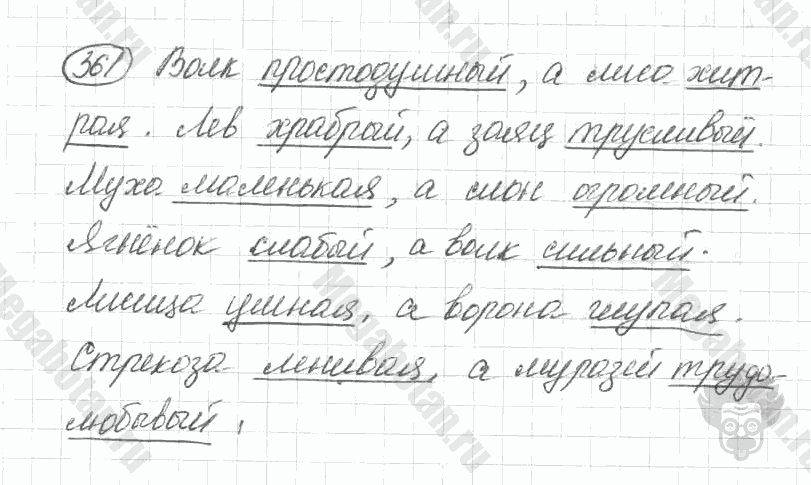 361 Волк простодушный, а лиса хит-
рая. Лев храбрый, а заяц трусливый.
Муха маленькая, а слон огромный.
Ягнёнок слабый, а волк сильный.
Лисица умная, а ворона глупая.
Стрекоза ленивая, а муравей трудо-
любывый.
Megabotan.ru